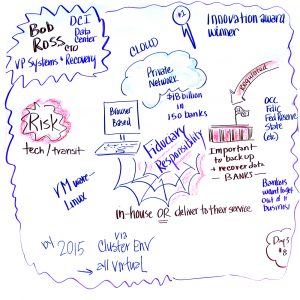 Bob
Ross
CTO
VP Systems & Recovery
DCI
Data
Center
#1
Innovation award
winner
CLOUD
Private
Network
$18 billion
in
150 banks
Regulated
OCC
Fdic
Fed Reserve
State
(etc)
Risk
tech/transit
Browser
Based
Fiduciary
Responsibility
Important
to back up
+ recover data
-BANKS-
VMware
Linux
in-house OR deliver to their service
Bankers
want to get
out of IT
business
by 2015 via
Cluster Env
→ all virtual
Day 3